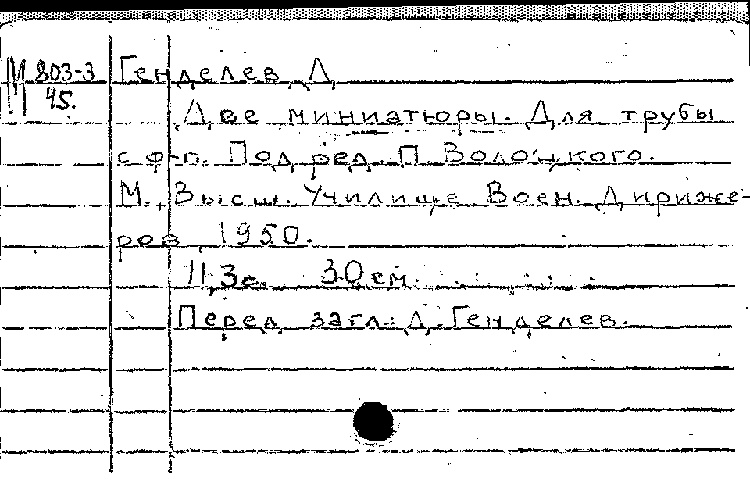 М 803-3 Генделев Д.
45.
Две миниатюры. Для трубы
с ф-п. Под ред. П. Волоцкого.
М., Высш. Училище Воен. Дириже-
ров, 1950.
11,3с. 30 см.
Перед загл.: Д. Генделев.